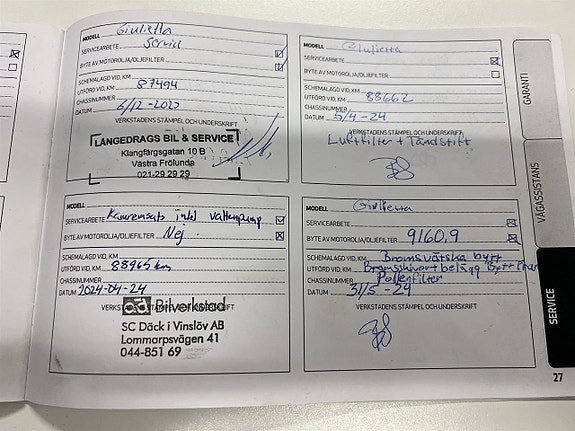 MODELL Giulietta
SERVICEARBETE Servic
BYTE AV MOTOROLJA/OLJEFILTER
SCHEMALAGD VID, KM
UTFÖRD VID, KM 87494
CHASSINUMMER
DATUM 6/12-2023
VERKSTADENS STÄMPEL OCH UNDERSKRIFT
LÅNGEDRAGS BIL & SERVICE
Klangfärgsgatan 10 B
Västra Frölunda
021-29 29 29
MODELL Giulietta
SERVICEARBETE
BYTE AV MOTOROLJA/OLJEFILTER
SCHEMALAGD VID, KM
UTFÖRD VID, KM 88662
CHASSINUMMER
DATUM 5/4-24
VERKSTADENS STÄMPEL OCH UNDERSKRIFT
Luktfilter + Tändstift
MODELL
SERVICEARBETE Kamremsats inkl vattenpump
BYTE AV MOTOROLJA/OLJEFILTER Nej
SCHEMALAGD VID, KM
UTFÖRD VID, KM 88965 km
CHASSINUMMER
DATUM 2024-04-24
VERKSTADENS STÄMPEL OCH UNDERSKRIFT
Bilverkstad
SC Däck i Vinslöv AB
Lommarpsvägen 41
044-851 69
MODELL Giulietta
SERVICEARBETE
BYTE AV MOTOROLJA/OLJEFILTER 9160,9
SCHEMALAGD VID, KM Bromsvätska bytt
UTFÖRD VID, KM Bromsskivor+belägg Bytt Fram
CHASSINUMMER Pollenfilter
DATUM 31/5-24
VERKSTADENS STÄMPEL OCH UNDERSKRIFT
GARANTI
VÄGASSISTANS
SERVICE
27